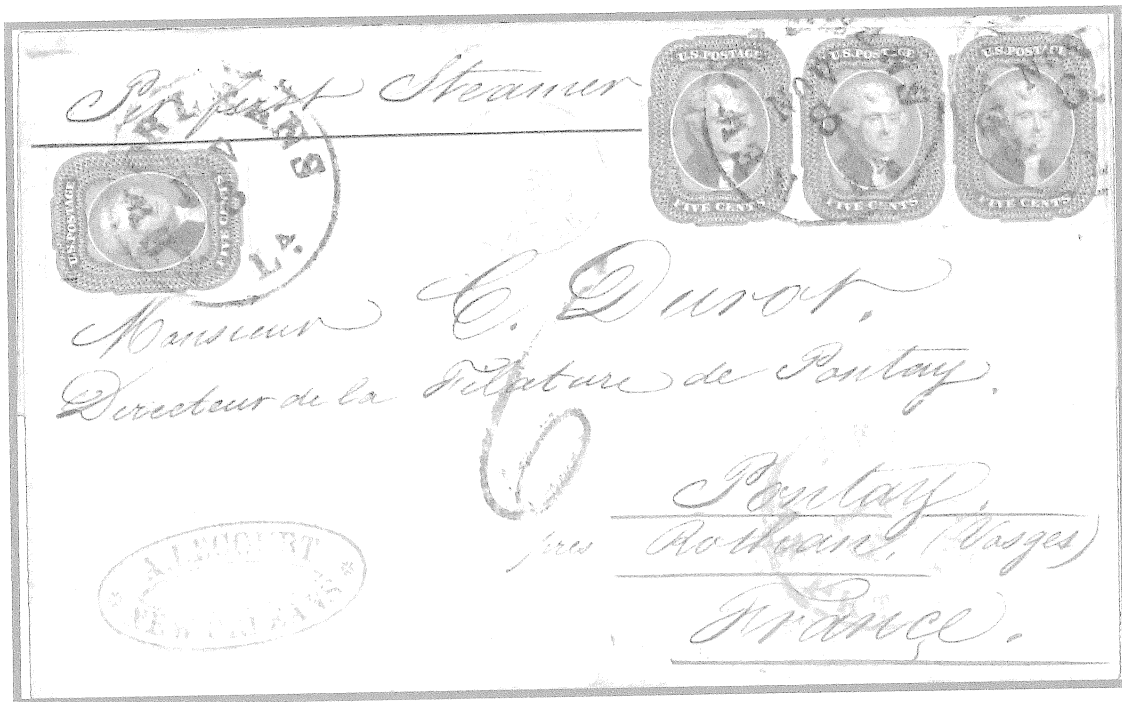 Per first Steamer
U.S. POSTAGE
FIVE CENTS
U.S. POSTAGE
FIVE CENTS
U.S. POSTAGE
FIVE CENTS
U.S. POSTAGE
FIVE CENTS
LA.
Monsieur C. Durot.
Directeur de la Filature de Pontay.
6
Pontay.
près Rothau, (Vosges)
France.
A. LECOURT
NEW ORLEANS